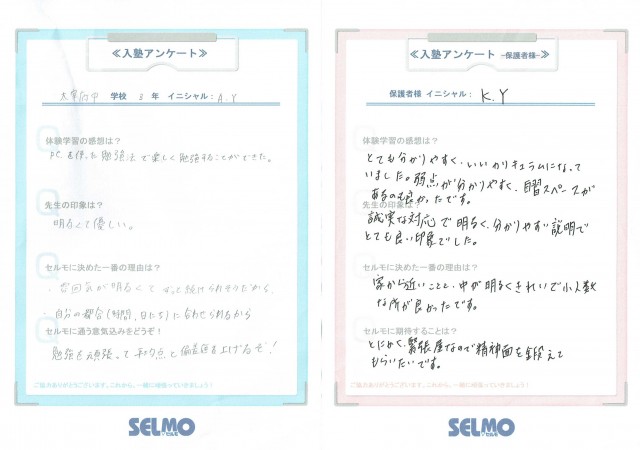 ≪入塾アンケート≫
太宰府中 学校 3 年 イニシャル： A.Y
体験学習の感想は？
PCを使った勉強法で楽しく勉強することができた。
先生の印象は？
明るくて優しい。
セルモに決めた一番の理由は？
・雰囲気が明るくてずっと続けられそうだから、
・自分の都合(時間,日にち)に合わせられるから
セルモに通う意気込みをどうぞ！
勉強を頑張って 点と偏差値を上げるぞ！
ご協力ありがとうございます。これから、一緒に頑張っていきましょう！
SELMO
セルモ
≪入塾アンケート -保護者様-≫
保護者様 イニシャル： K.Y
体験学習の感想は？
とても分かりやすく、いいカリキュラムになって
いました。弱点が分かりやすく、自習スペースが
あるのも良かったです。
先生の印象は？
誠実な対応で明るく、分かりやすい説明で
とても良い印象でした。
セルモに決めた一番の理由は？
家から近いことと、中が明るくきれいで小人数
な所が良かったです。
セルモに期待することは？
とにかく、緊張屋なので精神面を鍛えて
もらいたいです。
ご協力ありがとうございます。これから、一緒に頑張っていきましょう！
SELMO
セルモ